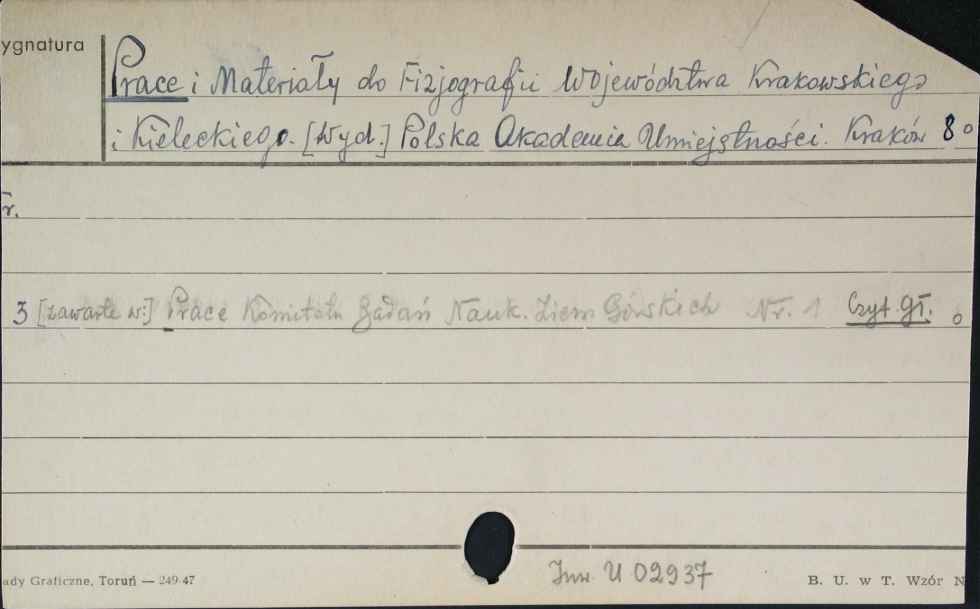 ygnatura
Prace i Materiały do Fizjografii Województwa Krakowskiego
i Kieleckiego. [Wyd.] Polska Akademia Umiejętności. Kraków 8°
r.
3 [zawarte w:] Prace Komitetu Badań Nauk. Ziem Górskich Nr. 1 Czyt. Gł. o
ady Graficzne, Toruń — 249-47
Inw. U 02937
B. U. w T. Wzór N